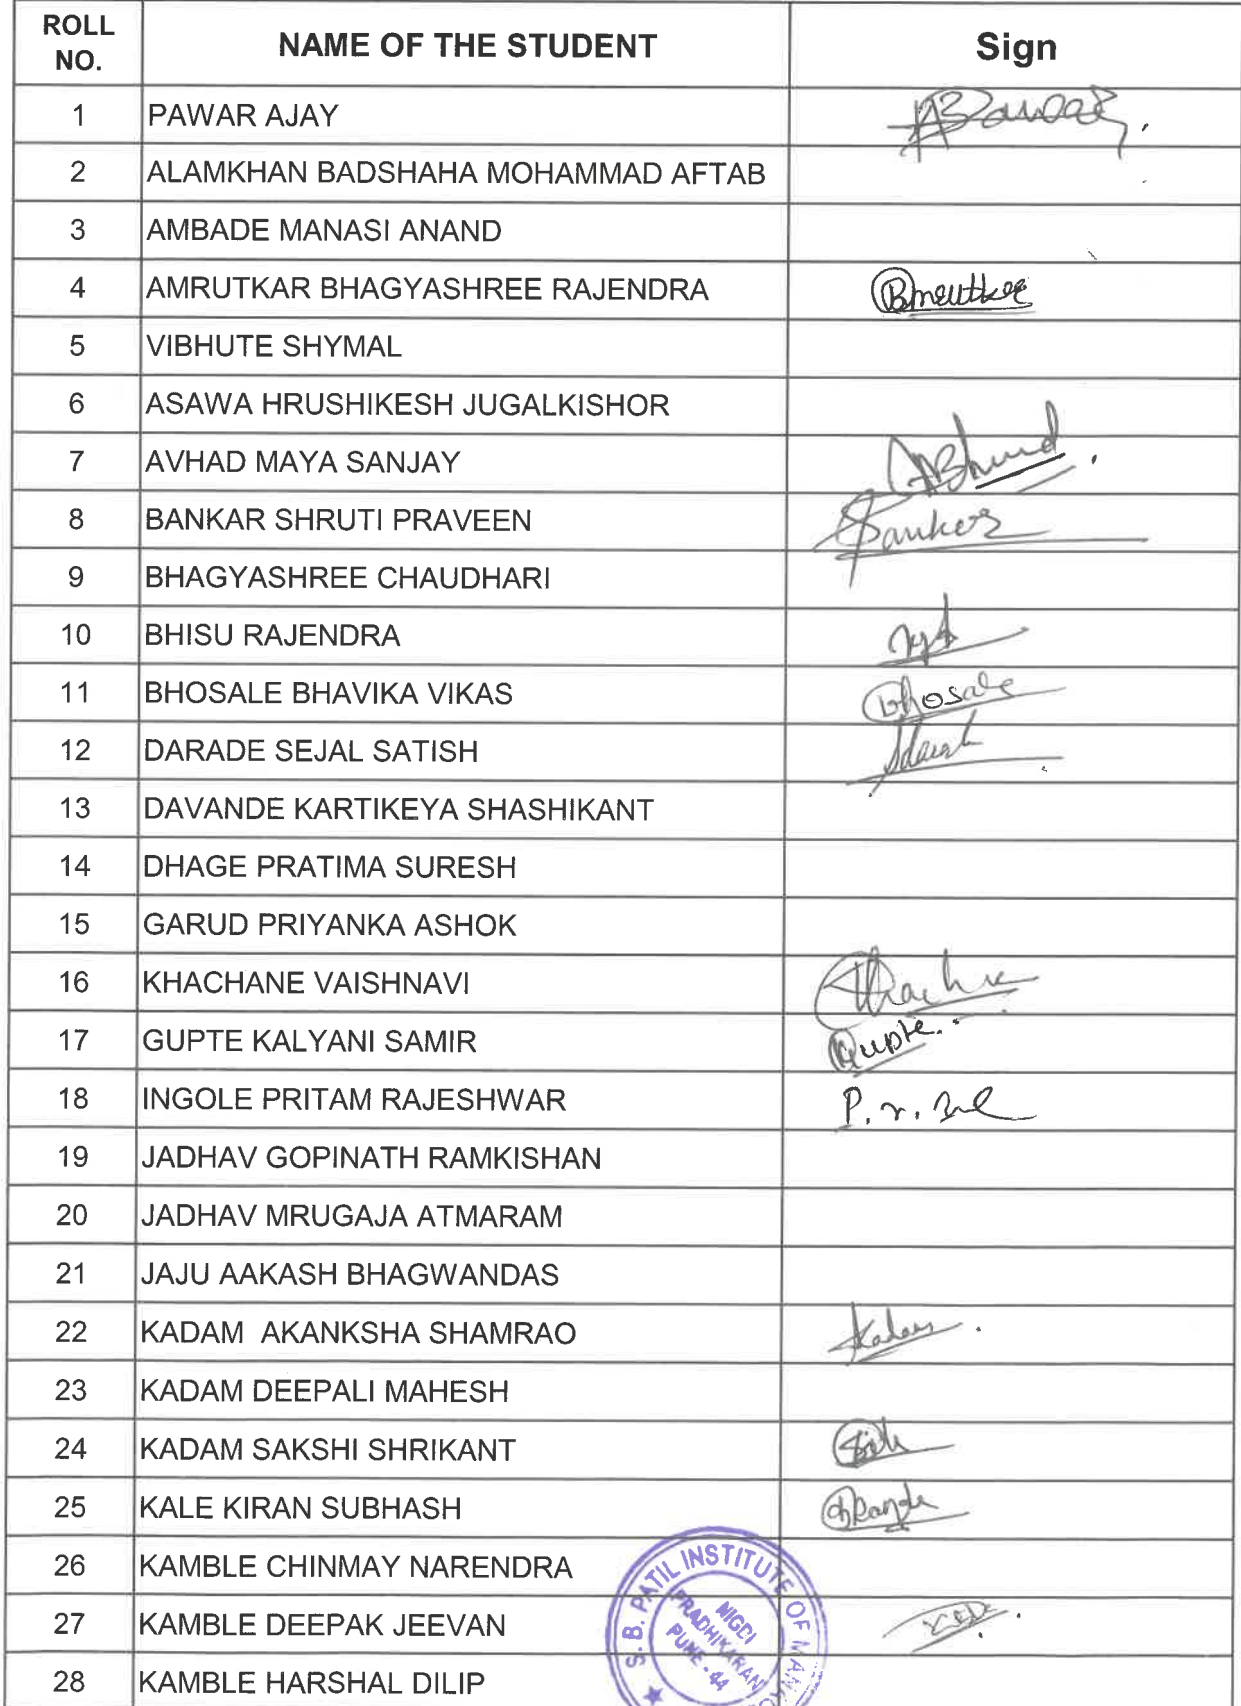 ROLL NO. NAME OF THE STUDENT Sign
1 PAWAR AJAY
2 ALAMKHAN BADSHAHA MOHAMMAD AFTAB
3 AMBADE MANASI ANAND
4 AMRUTKAR BHAGYASHREE RAJENDRA
5 VIBHUTE SHYMAL
6 ASAWA HRUSHIKESH JUGALKISHOR
7 AVHAD MAYA SANJAY
8 BANKAR SHRUTI PRAVEEN
9 BHAGYASHREE CHAUDHARI
10 BHISU RAJENDRA
11 BHOSALE BHAVIKA VIKAS Bhosale
12 DARADE SEJAL SATISH
13 DAVANDE KARTIKEYA SHASHIKANT
14 DHAGE PRATIMA SURESH
15 GARUD PRIYANKA ASHOK
16 KHACHANE VAISHNAVI
17 GUPTE KALYANI SAMIR Gupte
18 INGOLE PRITAM RAJESHWAR
19 JADHAV GOPINATH RAMKISHAN
20 JADHAV MRUGAJA ATMARAM
21 JAJU AAKASH BHAGWANDAS
22 KADAM AKANKSHA SHAMRAO Kadam
23 KADAM DEEPALI MAHESH
24 KADAM SAKSHI SHRIKANT
25 KALE KIRAN SUBHASH
26 KAMBLE CHINMAY NARENDRA
27 KAMBLE DEEPAK JEEVAN
28 KAMBLE HARSHAL DILIP
S. B. PATIL INSTITUTE OF
NIGDI
PRADHIKARAN
PUNE - 44